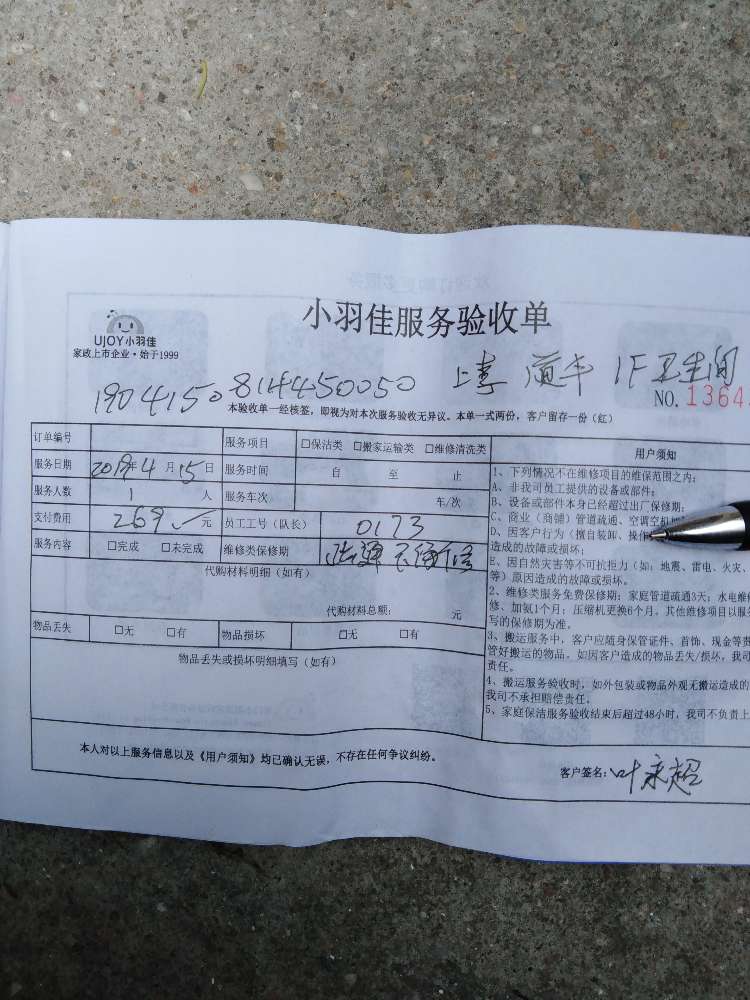 小羽佳服务验收单
UJOY小羽佳
家政上市企业·始于1999
1904150814450050 上 1F卫生间
NO.1364
本验收单一经核签，即视为对本次服务验收无异议。本单一式两份，客户留存一份（红）
订单编号 服务项目 □保洁类 □搬家运输类 □维修清洗类
服务日期 2019年4月15日 服务时间 自 至 止
服务人数 1 人 服务车次 车/次
支付费用 269 元 员工工号（队长） 0173
服务内容 □完成 □未完成 维修类保修期
代购材料明细（如有）
代购材料总额： 元
物品丢失 □无 □有 物品损坏 □无 □有
物品丢失或损坏明细填写（如有）
用户须知
1、下列情况不在维修项目的维保范围之内：
A、非我司员工提供的设备或部件；
B、设备或部件本身已经超过出厂保修期；
C、商业（商铺）管道疏通、空调空机
D、因客户行为（擅自装卸、操作
造成的故障或损坏；
E、因自然灾害等不可抗拒力（如：地震、雷电、火灾、
等）原因造成的故障或损坏。
2、维修类服务免费保修期：家庭管道疏通3天；水电维
修、加氨1个月；压缩机更换6个月，其他维修项目以服
写的保修期为准。
3、搬运服务中，客户应随身保管证件、首饰、现金等贵
管好搬运的物品，如因客户造成的物品丢失/损坏，我司
责任。
4、搬运服务验收时，如外包装或物品外观无搬运造成的
我司不承担赔偿责任。
5、家庭保洁服务验收结束后超过48小时，我司不负责上
本人对以上服务信息以及《用户须知》均已确认无误，不存在任何争议纠纷。
客户签名：叶永超